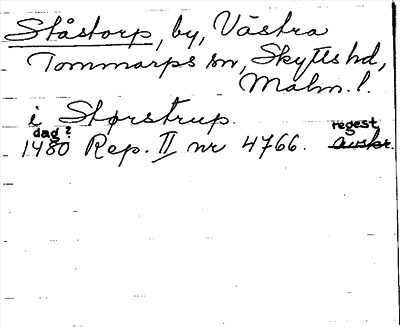 Ståstorp, by, Västra
Tommarps sn, Skytts hd,
Malm. l.
i Størstrup.
dag? regest
1480 Rep. II nr 4766. avskr.